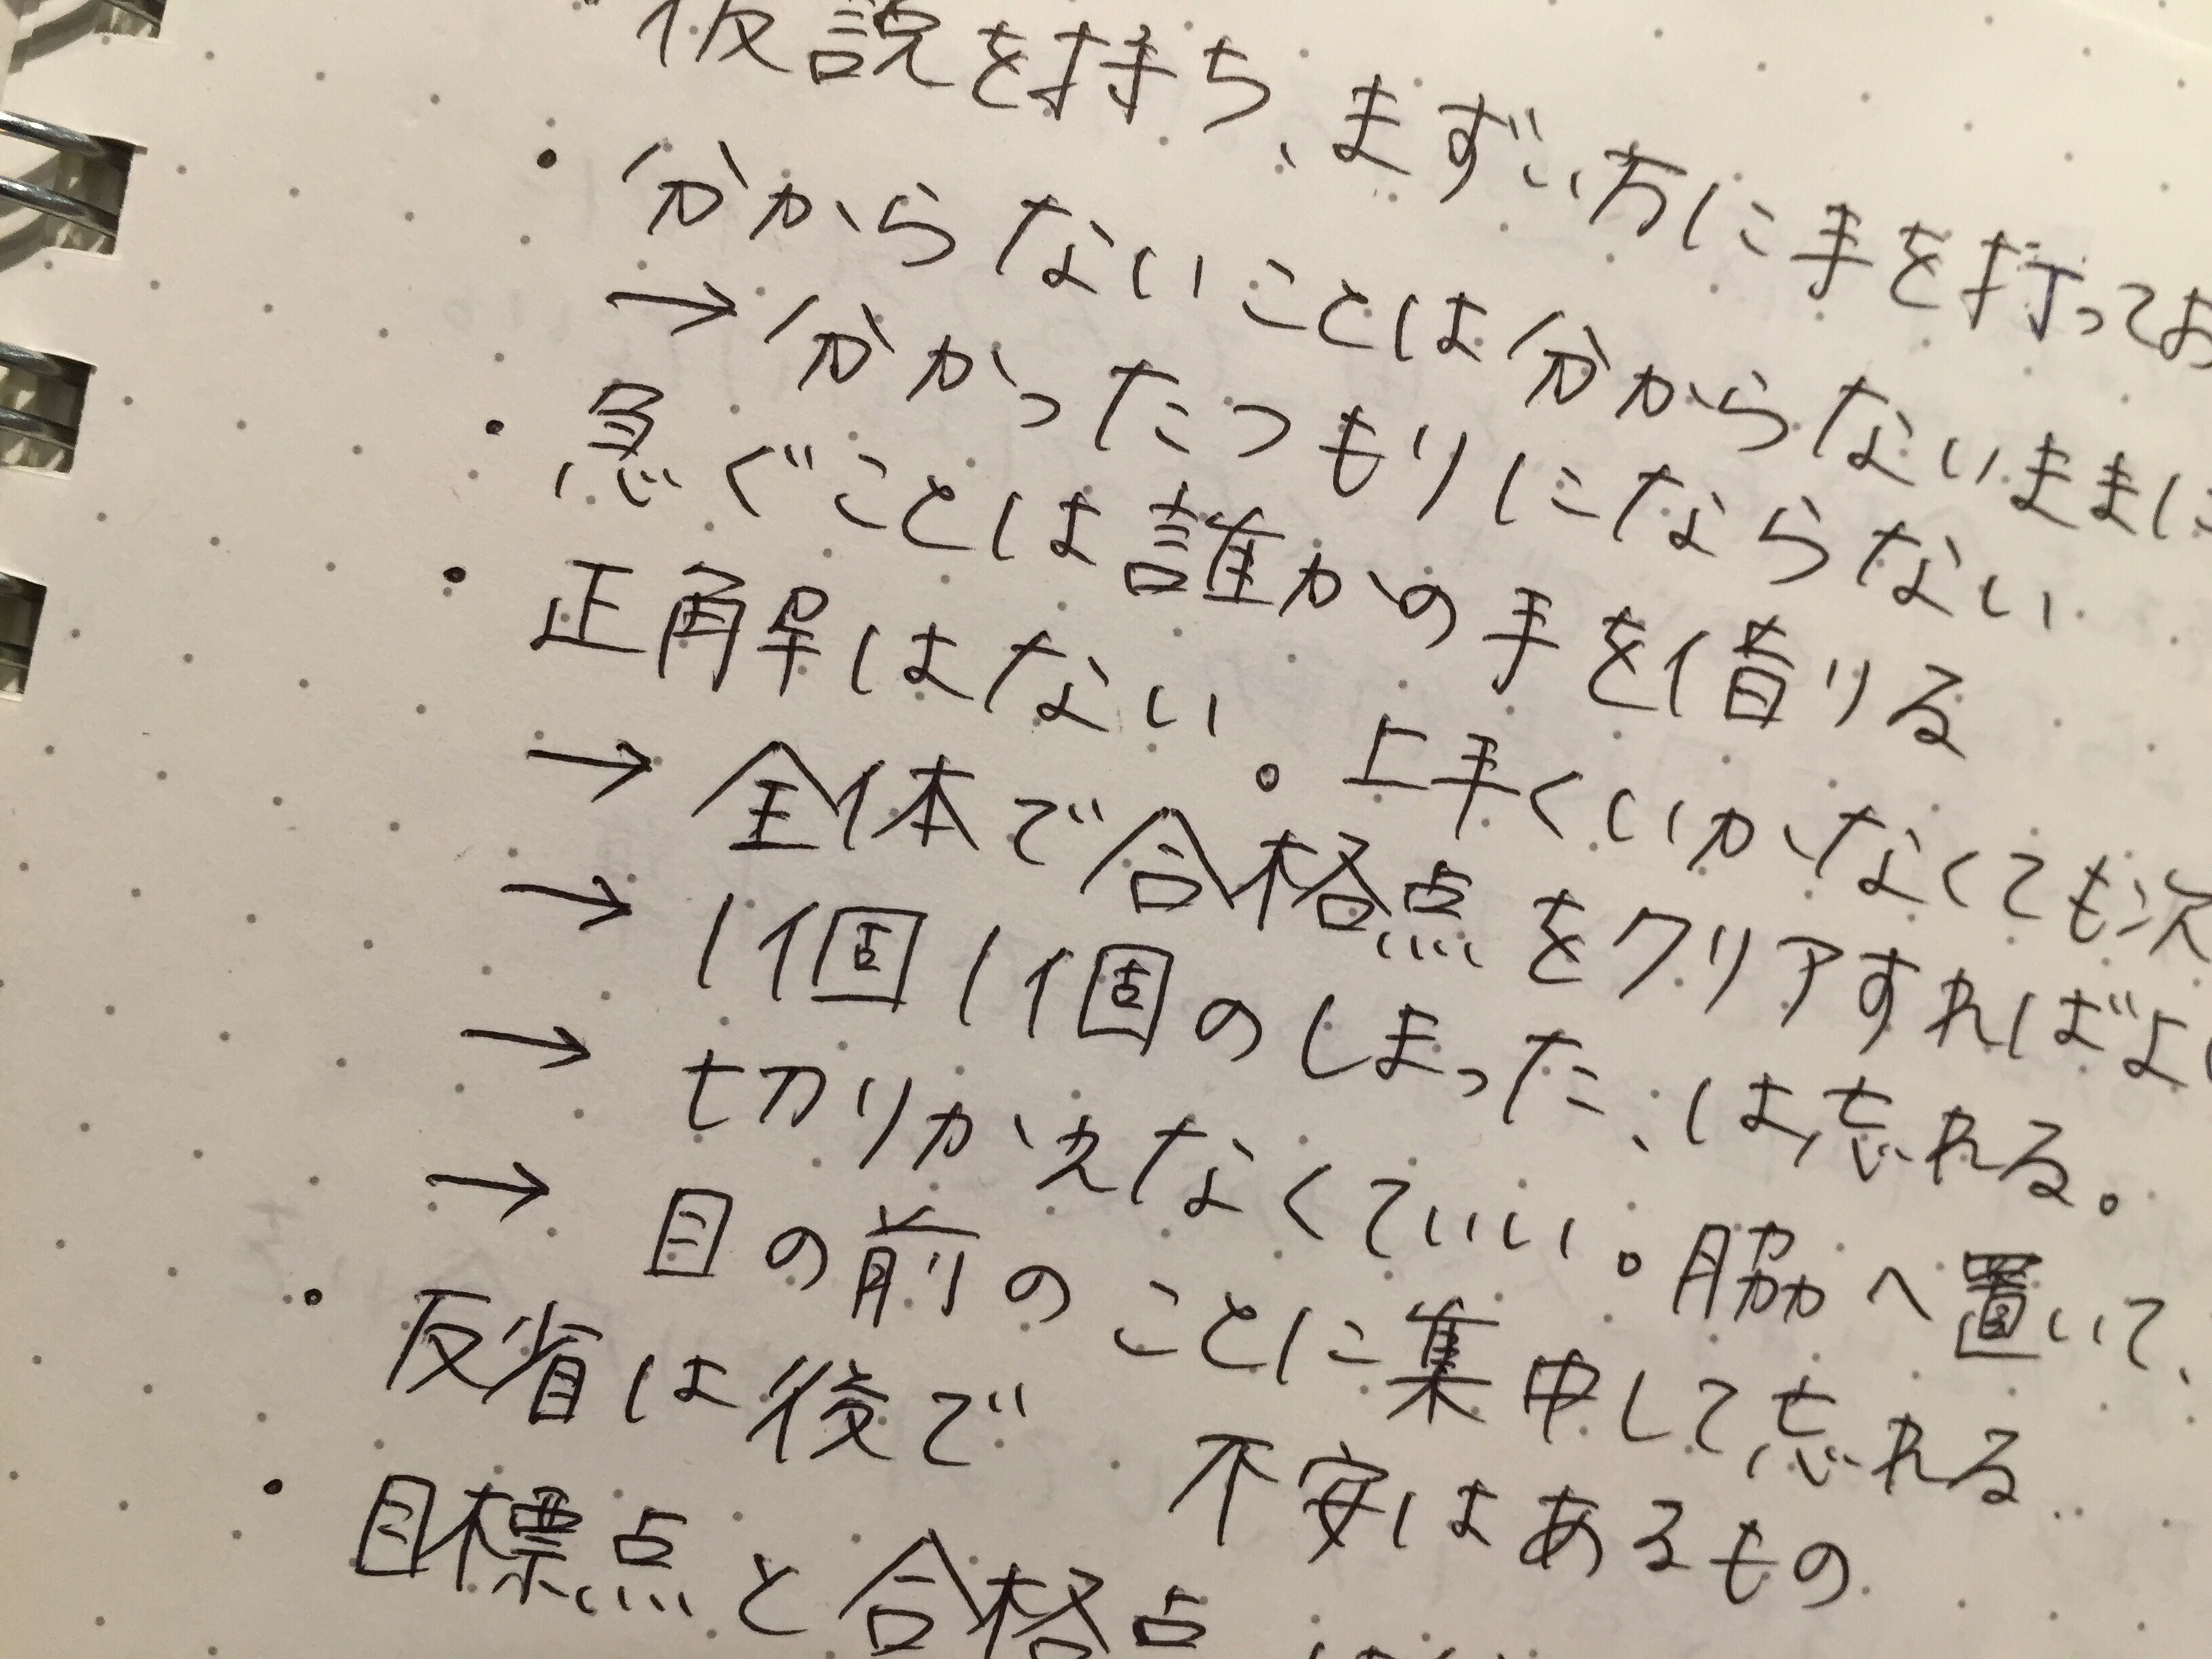 ・仮説を持ち、まずい方に手を打ってお
・分からないことは分からないままに
→分かったつもりにならない
・急ぐことは誰かの手を借りる
・正解はない。上手くいかなくても次
→全体で合格点をクリアすればよい
→1個1個のしまった、は忘れる。
→切りかえなくていい。脇へ置いて、
→目の前のことに集中して忘れる
・反省は後で 不安はあるもの
・目標点と合格点